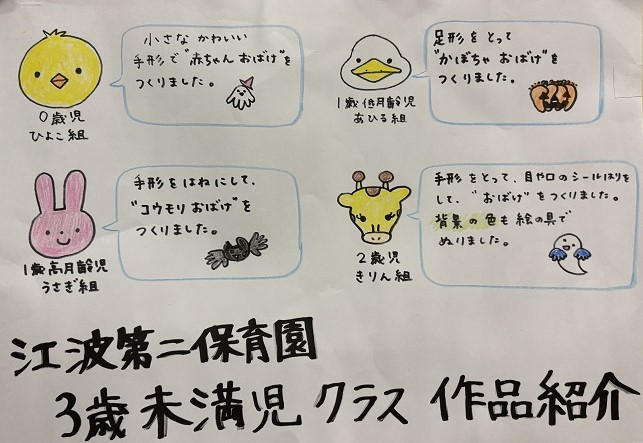 小さな かわいい
手形で"赤ちゃん おばけ"を
つくりました。
0歳児
ひよこ組
足形をとって
"かぼちゃ おばけ"を
つくりました。
1歳低月齢児
あひる組
手形をはねにして、
"コウモリ おばけ"を
つくりました。
1歳高月齢児
うさぎ組
手形をとって、目や口のシールはりを
して、"おばけ"をつくりました。
背景の色も絵の具で
ぬりました。
2歳児
きりん組
江波第二保育園
3歳未満児クラス 作品紹介